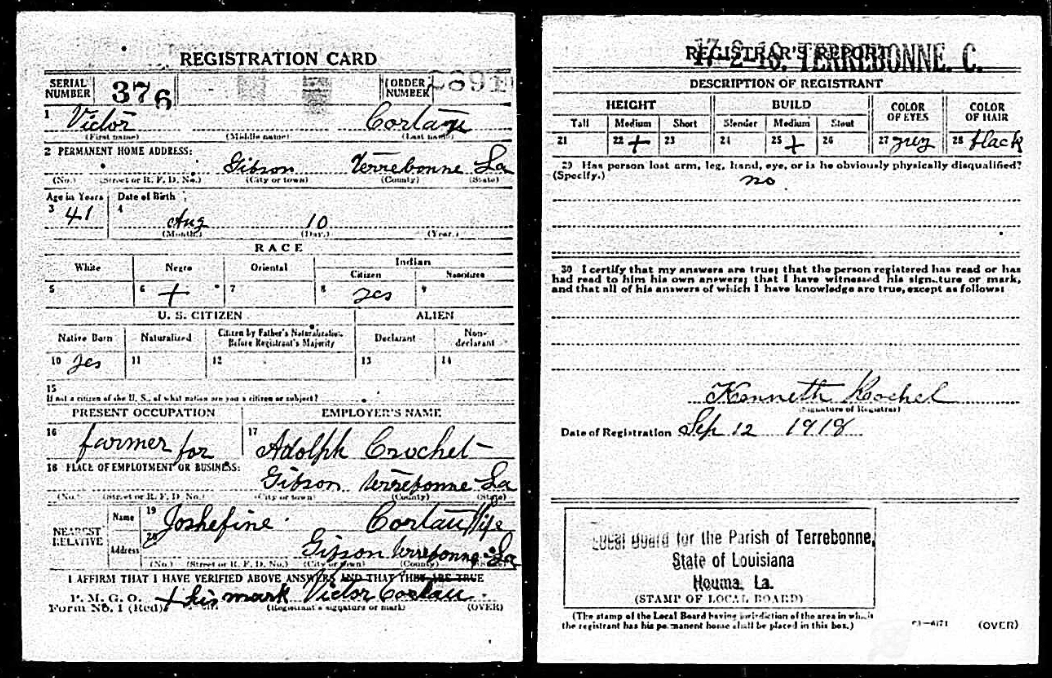 REGISTRATION CARD
SERIAL NUMBER 376 ORDER NUMBER 2891
1 Victor
(First name) (Middle name) (Last name)
2 PERMANENT HOME ADDRESS: Gibson Terrebonne La
(No.) (Street or R. F. D. No.) (City or town) (County) (State)
Age in Years Date of Birth
3 41 4 Aug 10
(Month.) (Day.) (Year.)
RACE
White Negro Oriental Indian
Citizen Noncitizen
5 6 + 7 8 yes 9
U. S. CITIZEN ALIEN
Native Born Naturalized Citizen by Father's Naturalization Before Registrant's Majority Declarant Non-declarant
10 yes 11 12 13 14
15
If not a citizen of the U. S., of what nation are you a citizen or subject?
PRESENT OCCUPATION EMPLOYER'S NAME
16 farmer for 17 Adolph Crochet
18 PLACE OF EMPLOYMENT OR BUSINESS:
Gibson Terrebonne La
(No.) (Street or R. F. D. No.) (City or town) (County) (State)
NEAREST RELATIVE
Name 19 Joshefine Cortau Wife
Address 20 Gibson Terrebonne La
(No.) (Street or R. F. D. No.) (City or town) (County) (State)
I AFFIRM THAT I HAVE VERIFIED ABOVE ANSWERS AND THAT THEY ARE TRUE
P. M. G. O.
Form No. 1 (Red) + his mark Victor Cortau
(Registrant's signature or mark) (OVER)
REGISTRAR'S REPORT
17-2-16. TERREBONNE. C.
DESCRIPTION OF REGISTRANT
HEIGHT BUILD COLOR OF EYES COLOR OF HAIR
Tall Medium Short Slender Medium Stout
21 22 + 23 24 25 + 26 27 grey 28 black
29 Has person lost arm, leg, hand, eye, or is he obviously physically disqualified?
(Specify.) no
30 I certify that my answers are true; that the person registered has read or has
had read to him his own answers; that I have witnessed his signature or mark,
and that all of his answers of which I have knowledge are true, except as follows:
Kenneth Kochel
(Signature of Registrar)
Date of Registration Sep 12 1918
Local Board for the Parish of Terrebonne,
State of Louisiana
Houma, La.
(STAMP OF LOCAL BOARD)
(The stamp of the Local Board having jurisdiction of the area in which
the registrant has his permanent home shall be placed in this box.)
(OVER)